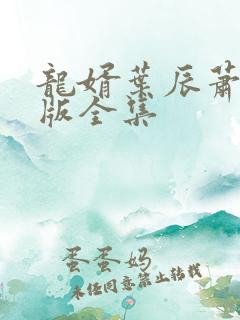 龍婿葉辰蕭
版全集
蛋蛋妈
未经同意禁止转载